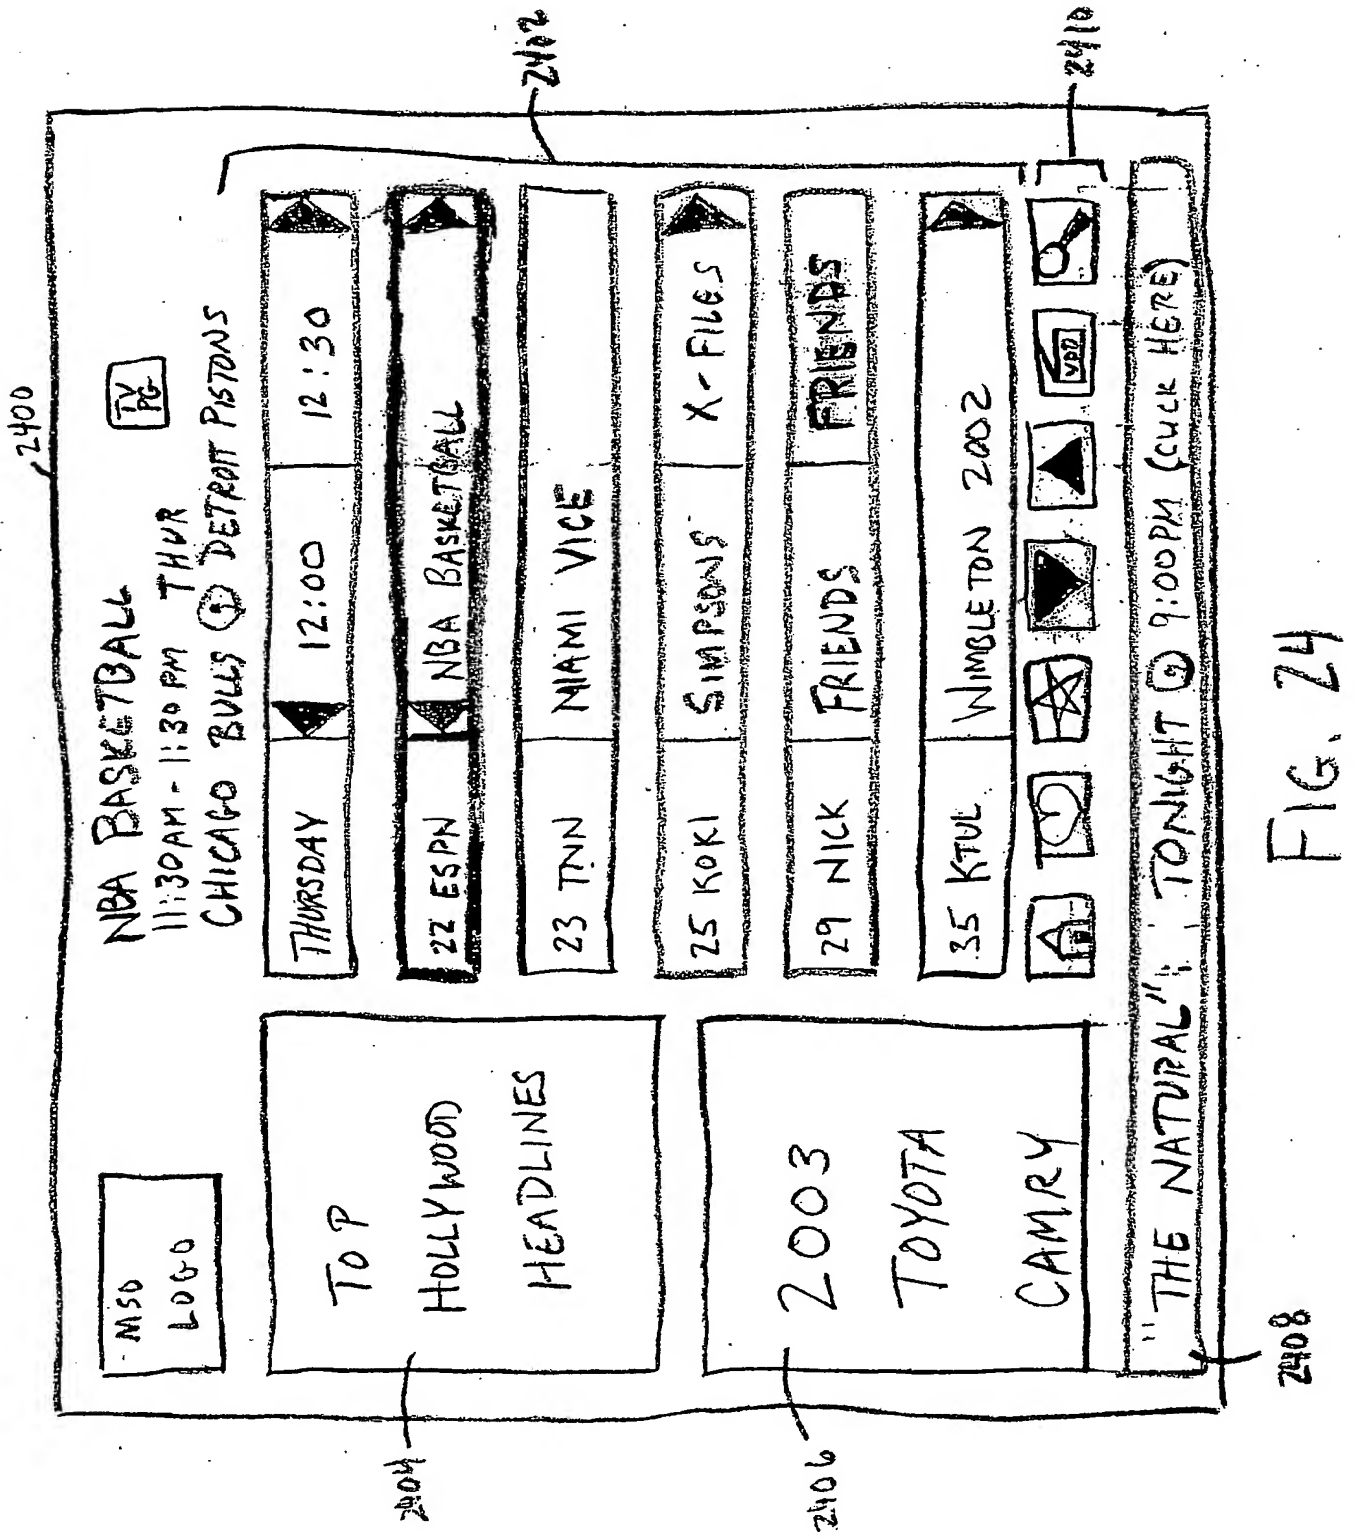 2400
MSO
LOGO
NBA BASKETBALL
TV
PG
11:30AM - 1:30PM THUR
CHICAGO BULLS @ DETROIT PISTONS
2402
THURSDAY 12:00 12:30
22 ESPN NBA BASKETBALL
23 TNN MIAMI VICE
25 KOKI SIMPSONS X-FILES
29 NICK FRIENDS FRIENDS
35 KTUL WIMBLETON 2002
2404
TOP
HOLLYWOOD
HEADLINES
2406
2003
TOYOTA
CAMRY
2410
2408
"THE NATURAL" TONIGHT @ 9:00PM (CLICK HERE)
FIG. 24